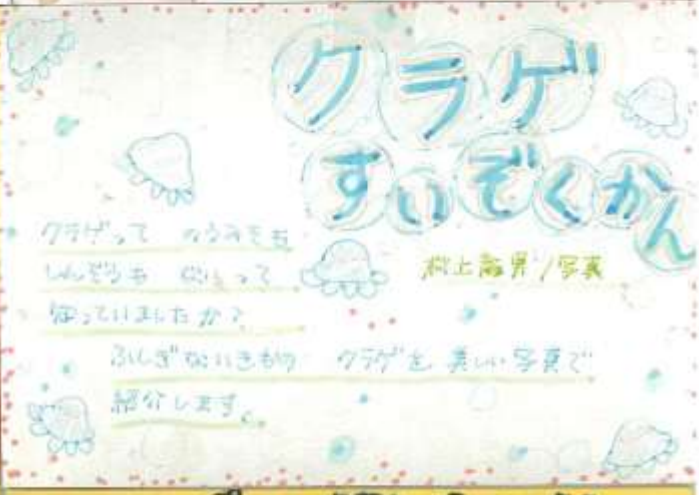 クラゲ
すいぞくかん
村上龍男/写真
クラゲって のうみそも
しんぞうも ないって
知っていましたか?
ふしぎないきもの クラゲを 美しい写真で
紹介します。